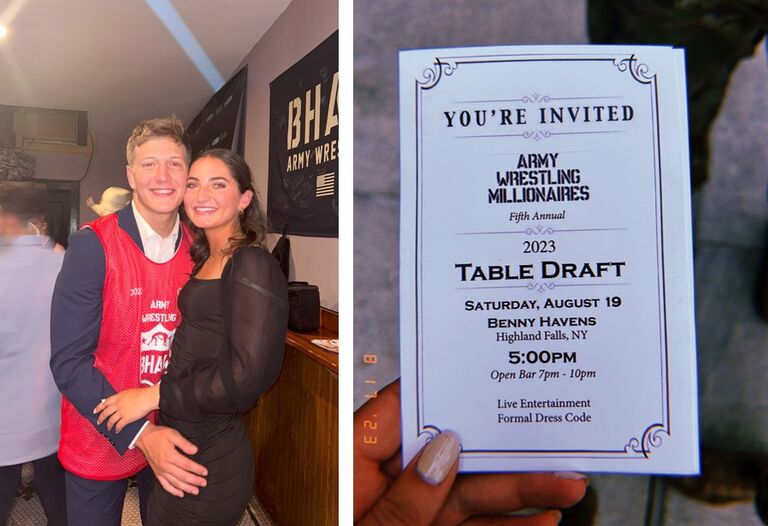 BHA
ARMY WRES
202
ARMY
WRESTLING
BHA
YOU'RE INVITED
ARMY
WRESTLING
MILLIONAIRES
Fifth Annual
2023
TABLE DRAFT
SATURDAY, AUGUST 19
BENNY HAVENS
Highland Falls, NY
5:00PM
Open Bar 7pm - 10pm
Live Entertainment
Formal Dress Code
8 17 '23